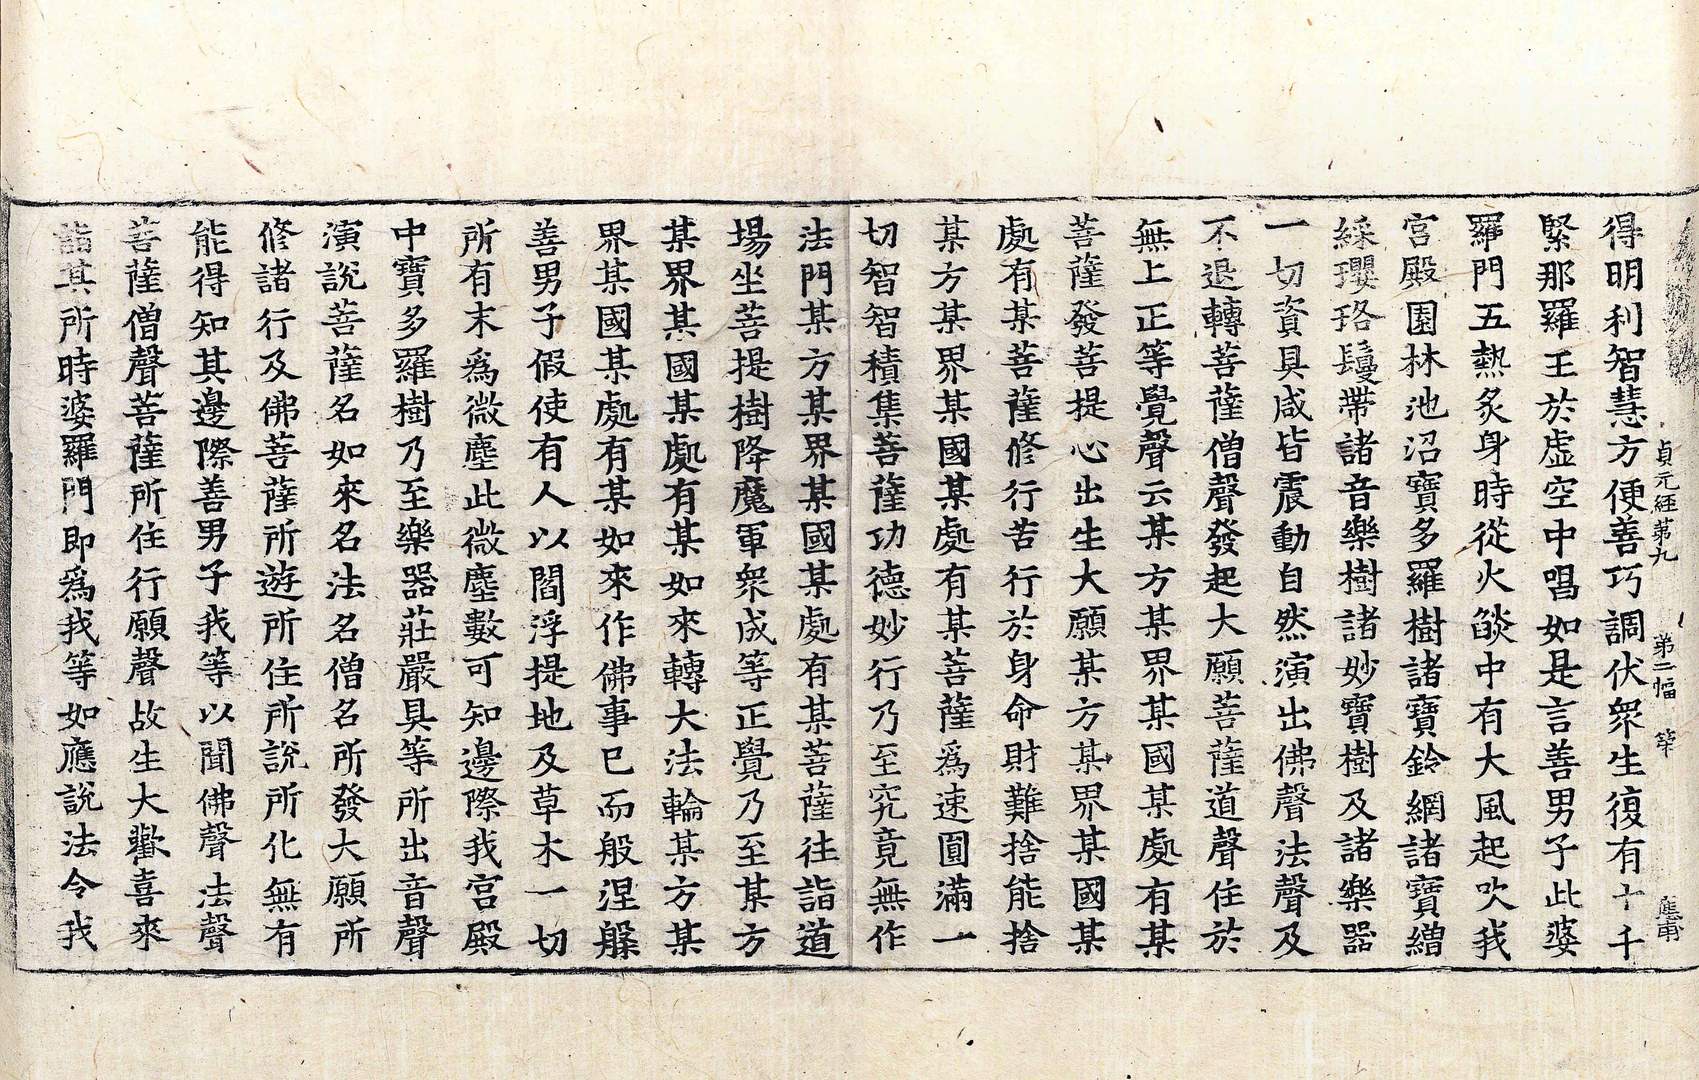 貞元經第九　第二幅　第　甫
得明利智慧方便善巧調伏眾生復有十千
緊那羅王於虛空中唱如是言善男子此婆
羅門五熱炙身時從火𦦨中有大風起吹我
宮殿園林池沼寶多羅樹諸寶鈴網諸寶繒
綵瓔珞鬘帶諸音樂樹諸妙寶樹及諸樂器
一切資具咸皆震動自然演出佛聲法聲及
不退轉菩薩僧聲發起大願菩薩道聲住於
無上正等覺聲云某方某界某國某處有某
菩薩發菩提心出生大願某方某界某國某
處有某菩薩修行苦行於身命財難捨能捨
某方某界某國某處有某菩薩為速圓滿一
切智智積集菩薩功德妙行乃至究竟無作
法門某方某界某國某處有某菩薩往詣道
場坐菩提樹降魔軍眾成等正覺乃至某方
某界某國某處有某如來轉大法輪某方某
界某國某處有某如來作佛事已而般涅槃
善男子假使有人以閻浮提地及草木一切
所有末為微塵此微塵數可知邊際我宮殿
中寶多羅樹乃至樂器莊嚴具等所出音聲
演說菩薩名如來名法名僧名所發大願所
修諸行及佛菩薩所遊所住所說所化無有
能得知其邊際善男子我等以聞佛聲法聲
菩薩僧聲菩薩所住行願聲故生大歡喜來
詣其所時婆羅門即為我等如應說法令我